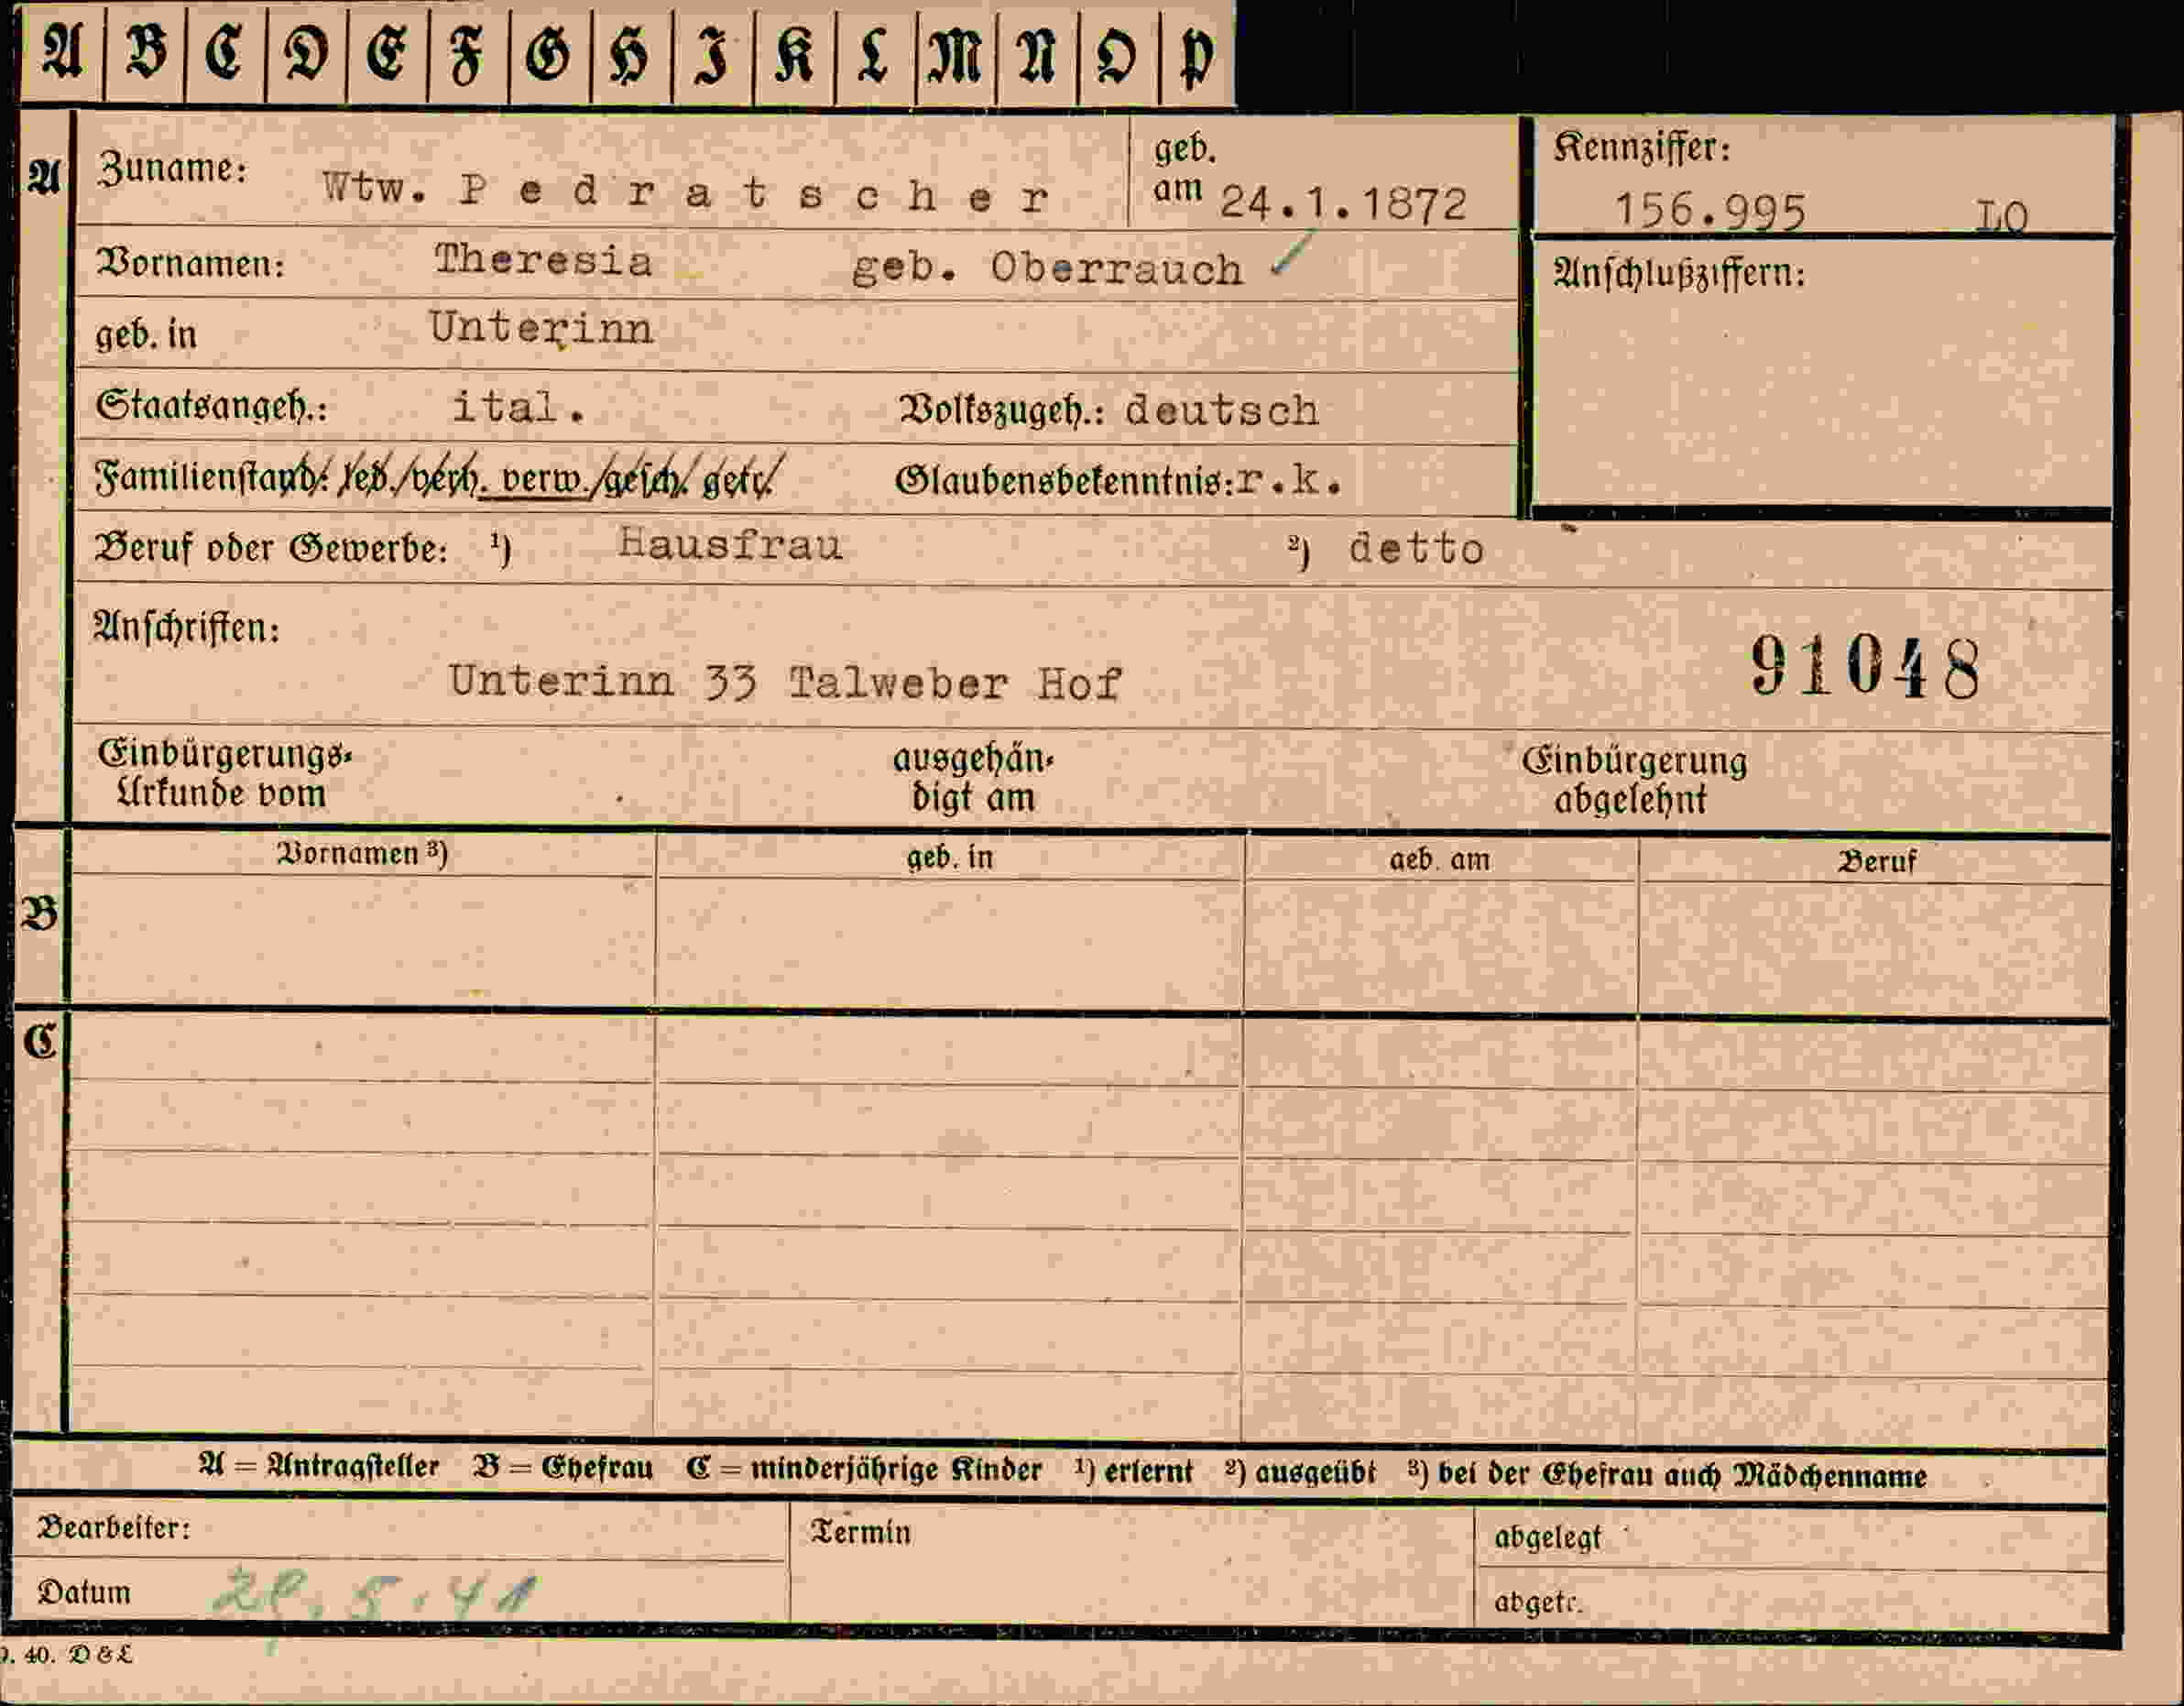 A B C D E F G H I K L M N O P
A Zuname: Wtw. Pedratscher geb. am 24.1.1872 Kennziffer: 156.995 LO
Vornamen: Theresia geb. Oberrauch ✓ Anschlußziffern:
geb. in Unterinn
Staatsangeh.: ital. Volkszugeh.: deutsch
Familienstand: led./verh. verw./gesch./getr. Glaubensbekenntnis: r.k.
Beruf oder Gewerbe: ¹) Hausfrau ²) detto
Anschriften:
91048
Unterinn 33 Talweber Hof
Einbürgerungs- ausgehän- Einbürgerung
Urkunde vom digt am abgelehnt
Vornamen ³) geb. in geb. am Beruf
B
C
A = Antragsteller B = Ehefrau C = minderjährige Kinder ¹) erlernt ²) ausgeübt ³) bei der Ehefrau auch Mädchenname
Bearbeiter: Termin abgelegt
Datum 29.5.41 abgetr.
40. D & L